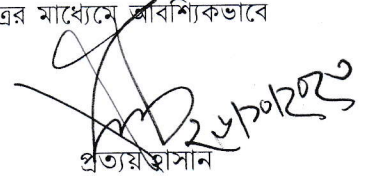 এর মাধ্যেমে আবশ্যিকভাবে
২৬/১০/২০২৩
প্রত্যয় হাসান